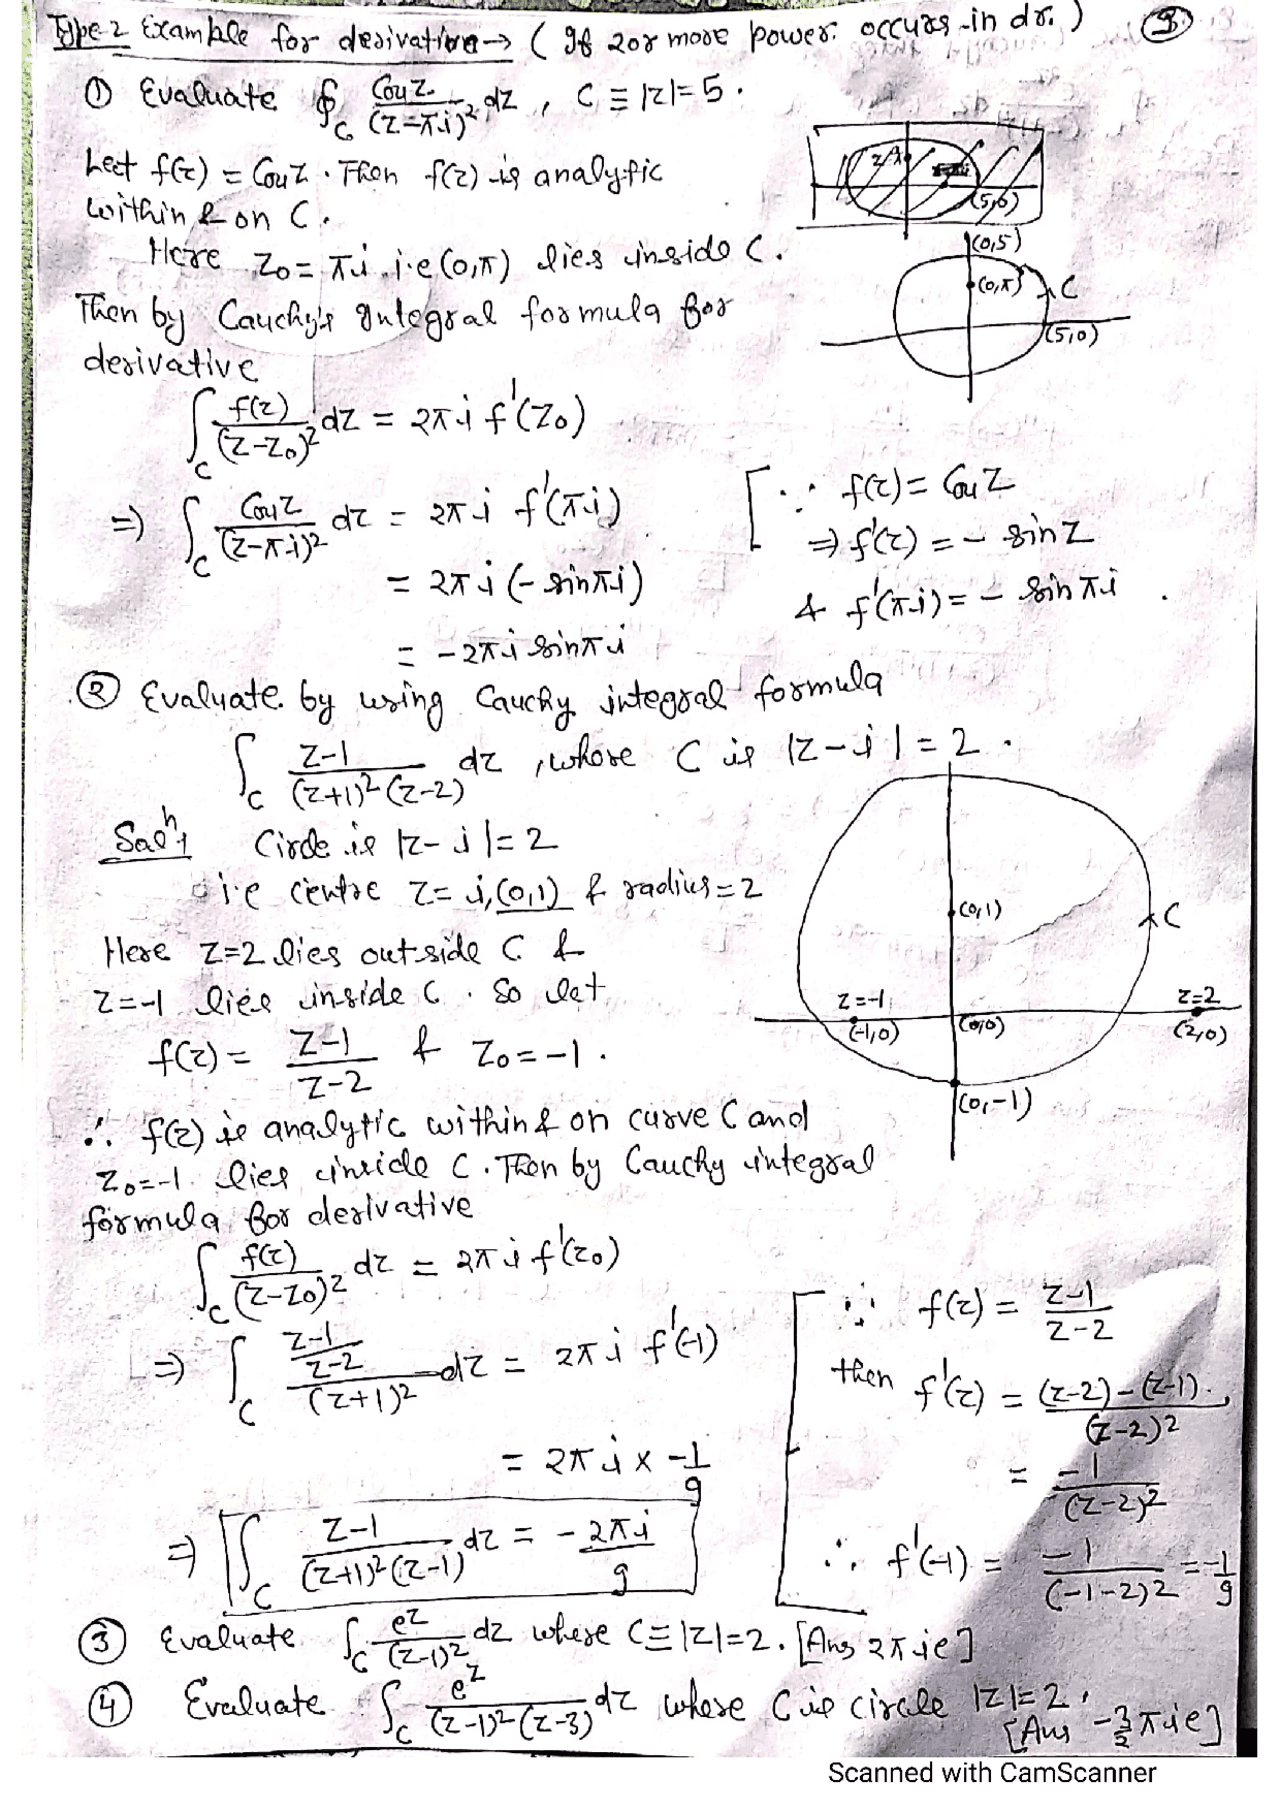 Type-2 Example for derivative → ( If 2 or more power occurs in dr. ) ③
① Evaluate ∮_C Cos z/(z-πi)² dz , C ≡ |z|=5 .
Lect f(z) = Cos z . Then f(z) is analytic
within & on C .
Here z₀ = πi i.e (0,π) lies inside C .
(5,0)
(0,5)
(0,π) C
(5,0)
Then by Cauchy's Integral formula for
derivative
∫_C f(z)/(z-z₀)² dz = 2πi f'(z₀)
⇒ ∫_C Cos z/(z-πi)² dz = 2πi f'(πi)
= 2πi (- sinπi)
= -2πi sinπi
[ ∵ f(z) = Cos z
⇒ f'(z) = - sin z
& f'(πi) = - sin πi .
② Evaluate by using Cauchy integral formula
∫_C z-1/(z+1)²(z-2) dz , where C is |z-i|=2 .
Solⁿ: Circle is |z-i|=2
i.e centre z=i,(0,1) & radius=2
Here z=2 lies outside C &
z=-1 lies inside C . So let
f(z) = z-1/z-2 & z₀=-1 .
(0,1) C
z=-1 z=2
(-1,0) (0,0) (2,0)
(0,-1)
∴ f(z) is analytic within & on curve C and
z₀=-1 lies inside C . Then by Cauchy integral
formula for derivative
∫_C f(z)/(z-z₀)² dz = 2πi f'(z₀)
⇒ ∫_C (z-1/z-2)/(z+1)² dz = 2πi f'(-1)
= 2πi × -1/9
⇒ ∫_C z-1/(z+1)²(z-1) dz = - 2πi/9
[ ∵ f(z) = z-1/z-2
then f'(z) = (z-2)-(z-1)./(z-2)²
= -1/(z-2)²
∴ f'(-1) = -1/(-1-2)² = -1/9
③ Evaluate ∫_C e^z/(z-1)² dz where C≡|z|=2 . [Ans 2πie]
④ Evaluate ∫_C e^z/(z-1)²(z-3) dz where C is circle |z|=2 .
[Ans -3/2 πie]
Scanned with CamScanner